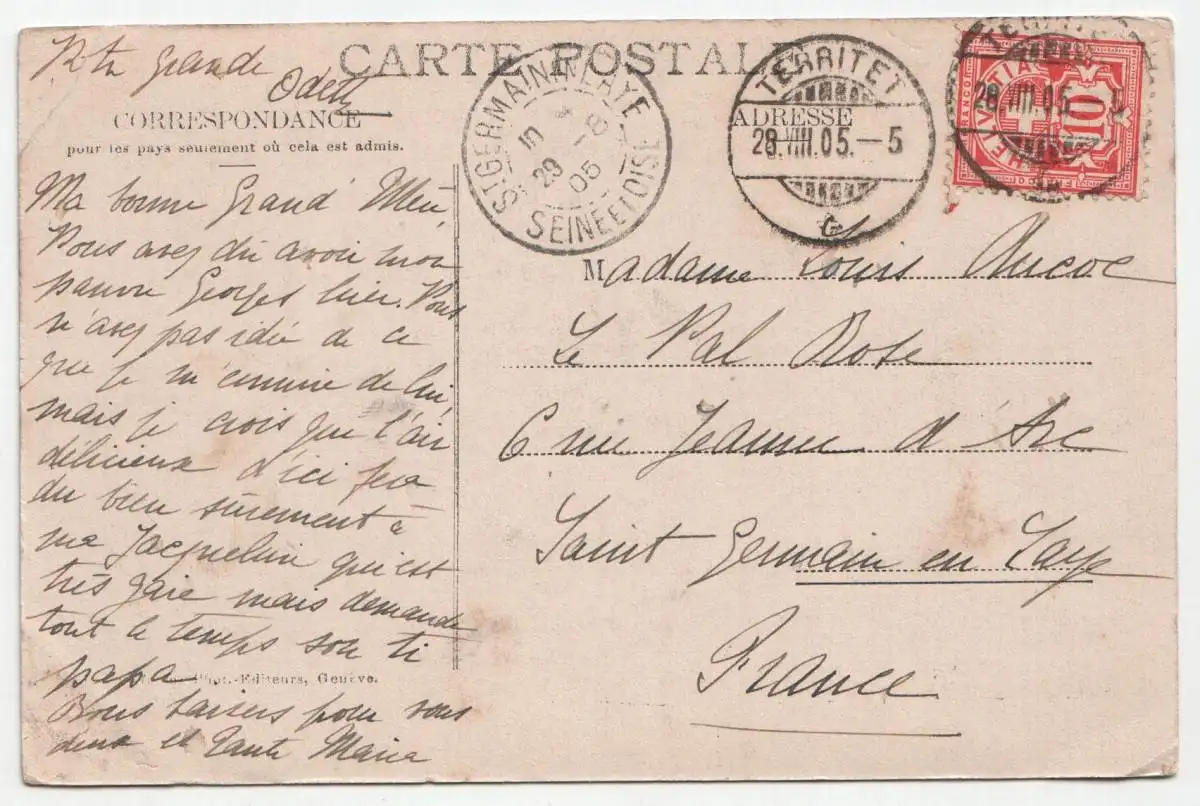 Grande
Odette
CARTE POSTALE
CORRESPONDANCE
pour les pays seulement où cela est admis.
ADRESSE
ST GERMAIN-EN-LAYE
29
05
SEINE ET OISE
TERRITET
28.VIII.05.–5
28.VIII.05
FRANCO
HELVETIA
10
Ma bonne Grand'Mère
Vous avez dû avoir mon
pauvre Georges hier. Vous
n'avez pas idée de ce
que je m'ennuie de lui,
mais je crois que l'air
délicieux d'ici fera
du bien sûrement à
ma Jacqueline qui est
très gaie mais demande
tout le temps son ti
papa
Phot.-Editeurs, Genève.
Bons baisers pour vous
deux et Tante Maria
Madame Louis Aucoc
Le Val Rose
6 rue Jeanne d'Arc
Saint Germain en Laye
France